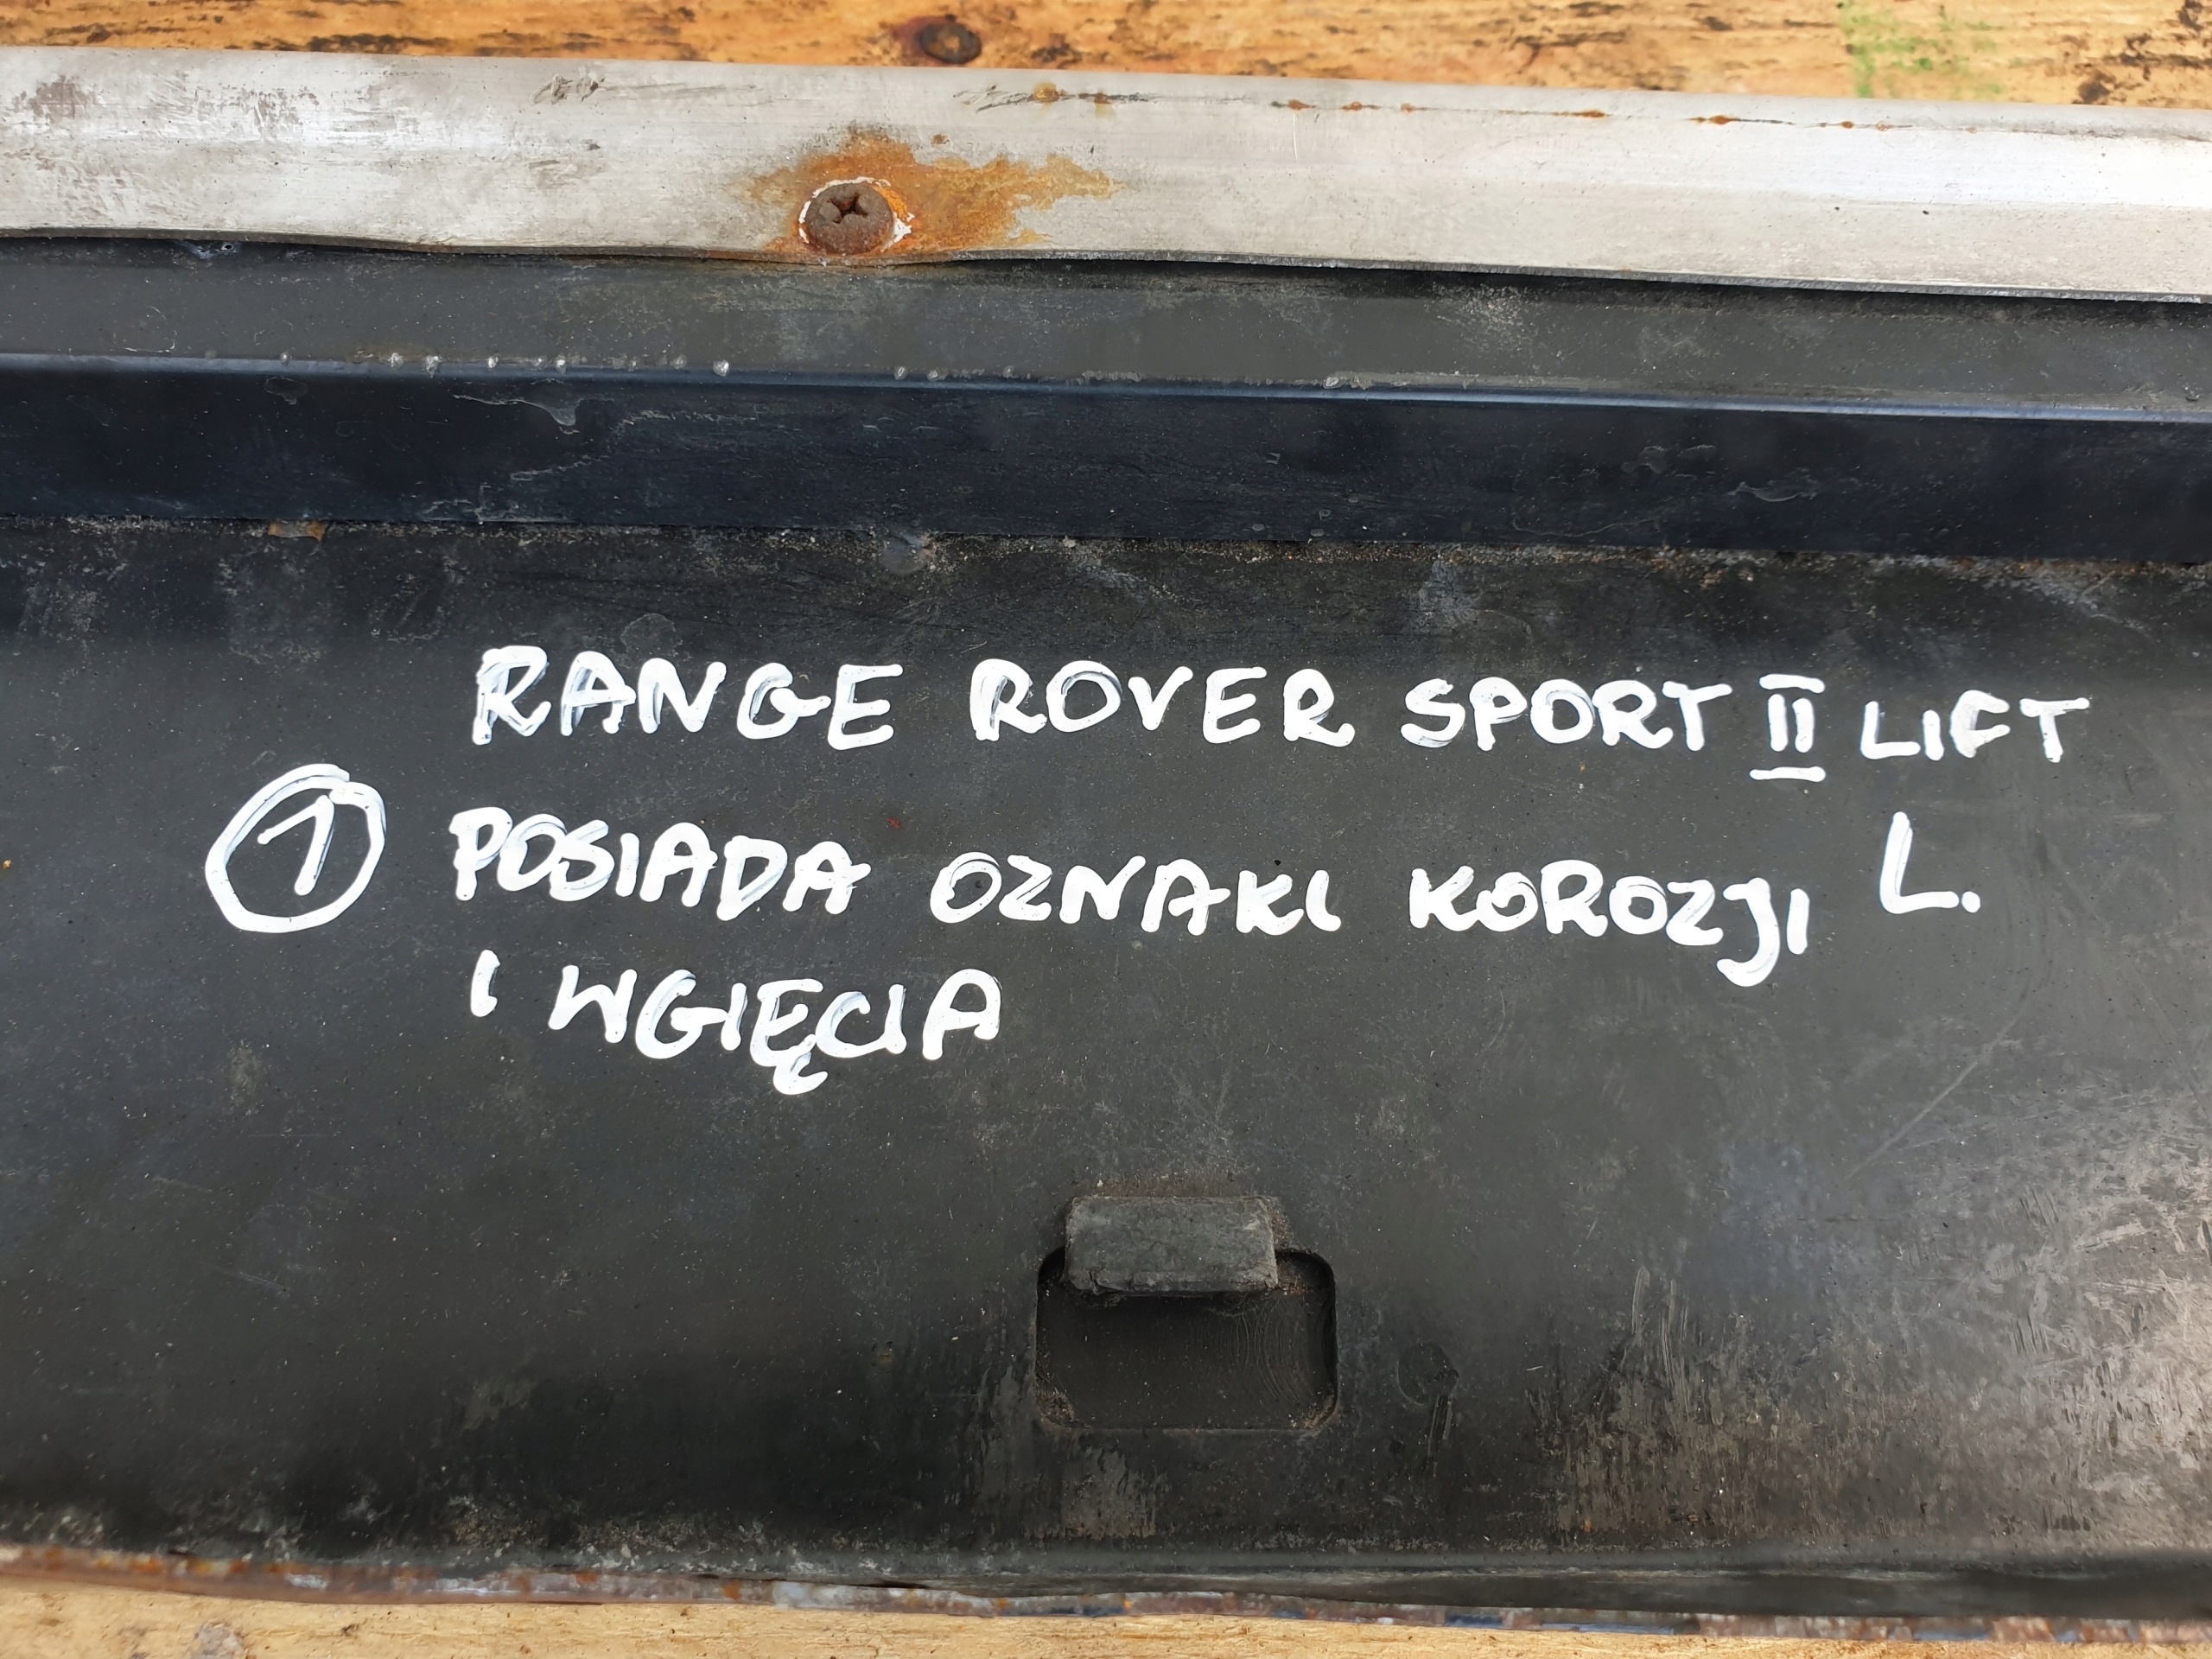 RANGE ROVER SPORT II LIFT
① POSIADA OZNAKI KOROZJI L.
I WGIĘCIA